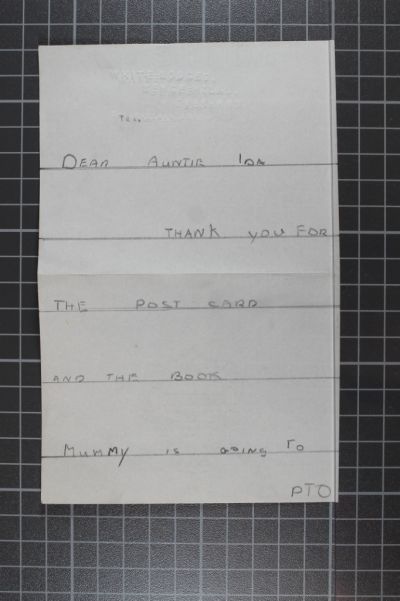 WHITE LODGE,
DEAR AUNTIE IDA
THANK YOU FOR
THE POST CARD
AND THE BOOK
MUMMY IS GOING TO
PTO